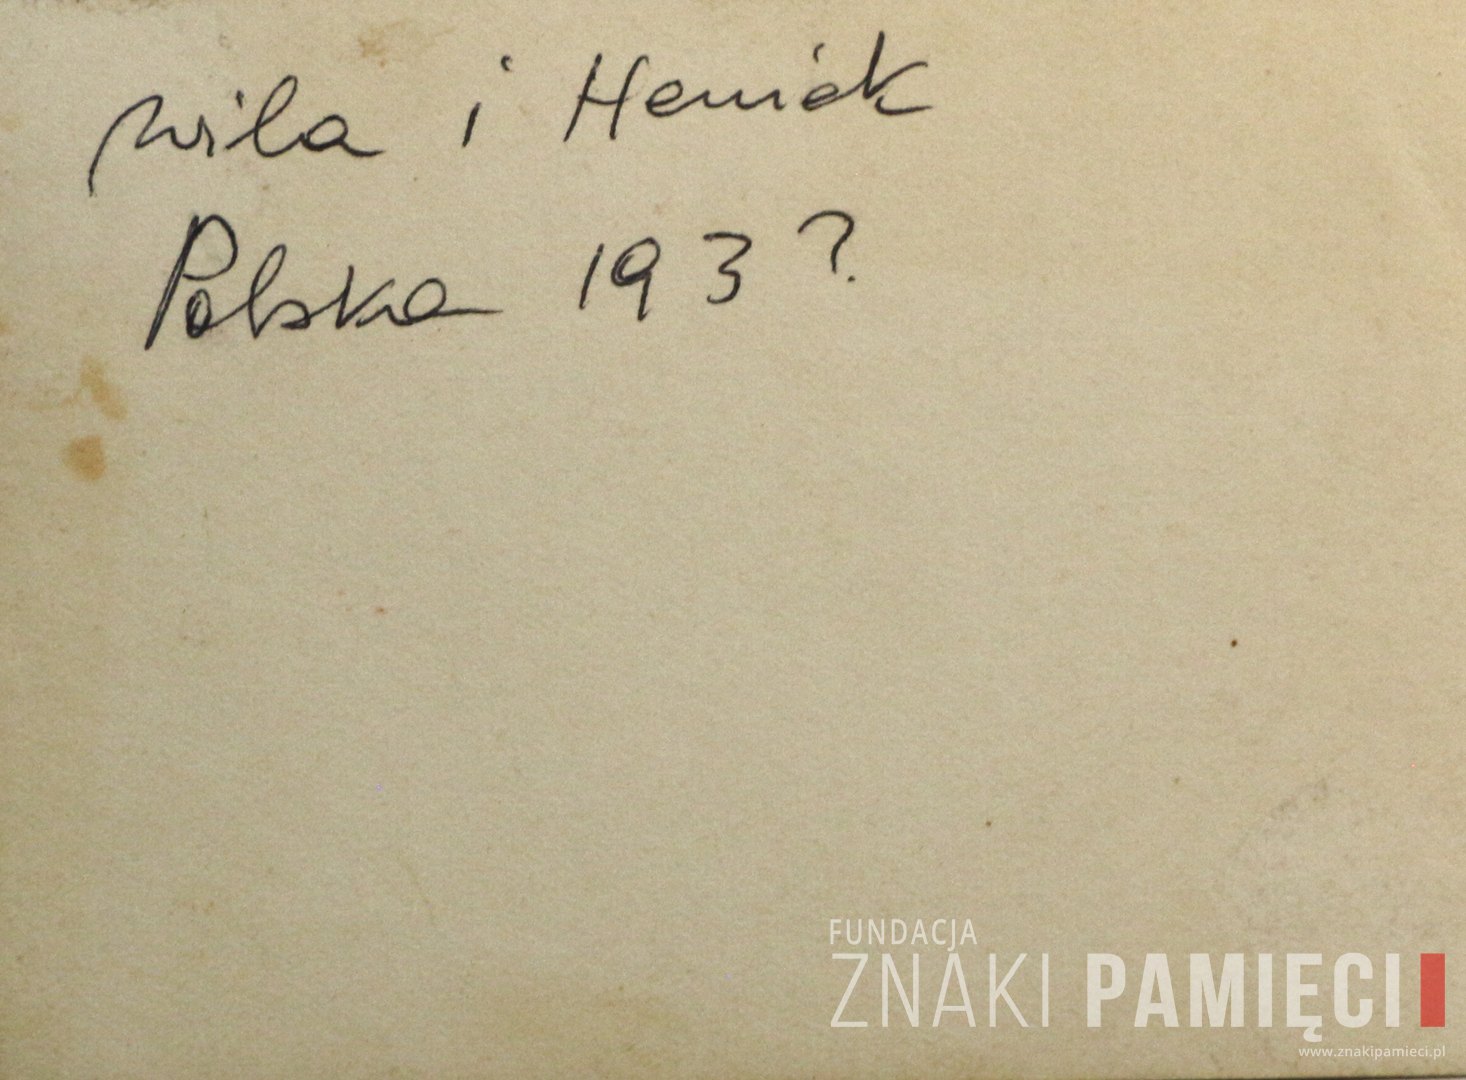 Mila i Heniek
Polska 193?
FUNDACJA
ZNAKI PAMIĘCI
www.znakipamieci.pl